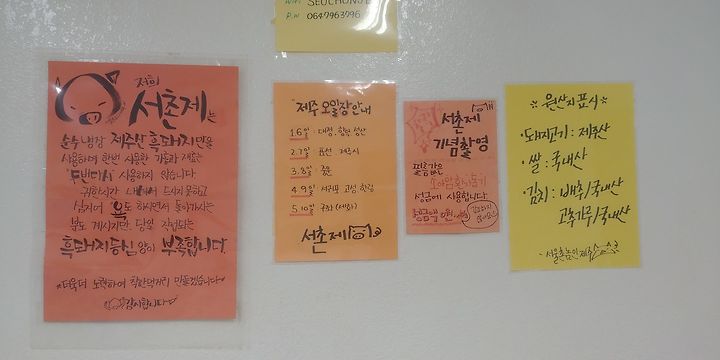 WiFi SEOCHONJE
P.W 0647963796
저희
서촌제는
순수 냉장 제주산 흑돼지만을
사용하며 한번 사용한 기름과 재료는
두번다시 사용하지 않습니다
귀한시간 내셔서 드시지못하고
심지어 욕도 하시면서 돌아가시는
분도 계시지만 당일 작업되는
흑돼지등심 양이 부족합니다.
*더욱더 노력하여 착한먹거리 만들겠습니다
감사합니다
제주 오일장안내
1.6일 : 대정, 함덕, 성산
2.7일 : 표선 제주시
3.8일 : 중문
4.9일 : 서귀포 고성 한림
5.10일 : 구좌 (세화)
서촌제
서촌제
기념촬영
필름값은
소아암환아돕기
성금에 사용합니다
원산지표시
돼지고기 : 제주산
쌀 : 국내산
김치 : 배추/국내산
고추가루/국내산